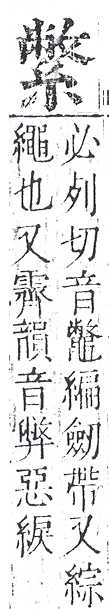 必列切音鼈編劒帶又綜
繩也又霽韻音弊惡綟